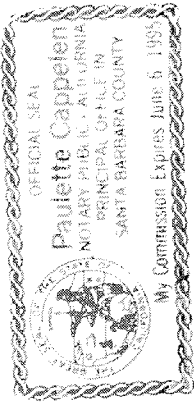 OFFICIAL SEAL
Paulette Cappelen
NOTARY PUBLIC CALIFORNIA
PRINCIPAL OFFICE IN
SANTA BARBARA COUNTY
My Commission Expires June 6 1995